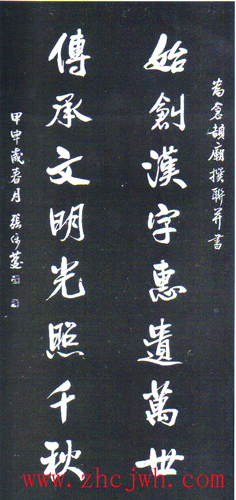 為倉頡廟撰聯并書
始創漢字惠遺萬世
傳承文明光照千秋
甲申歲暮月 張
www.zhcjwh.com